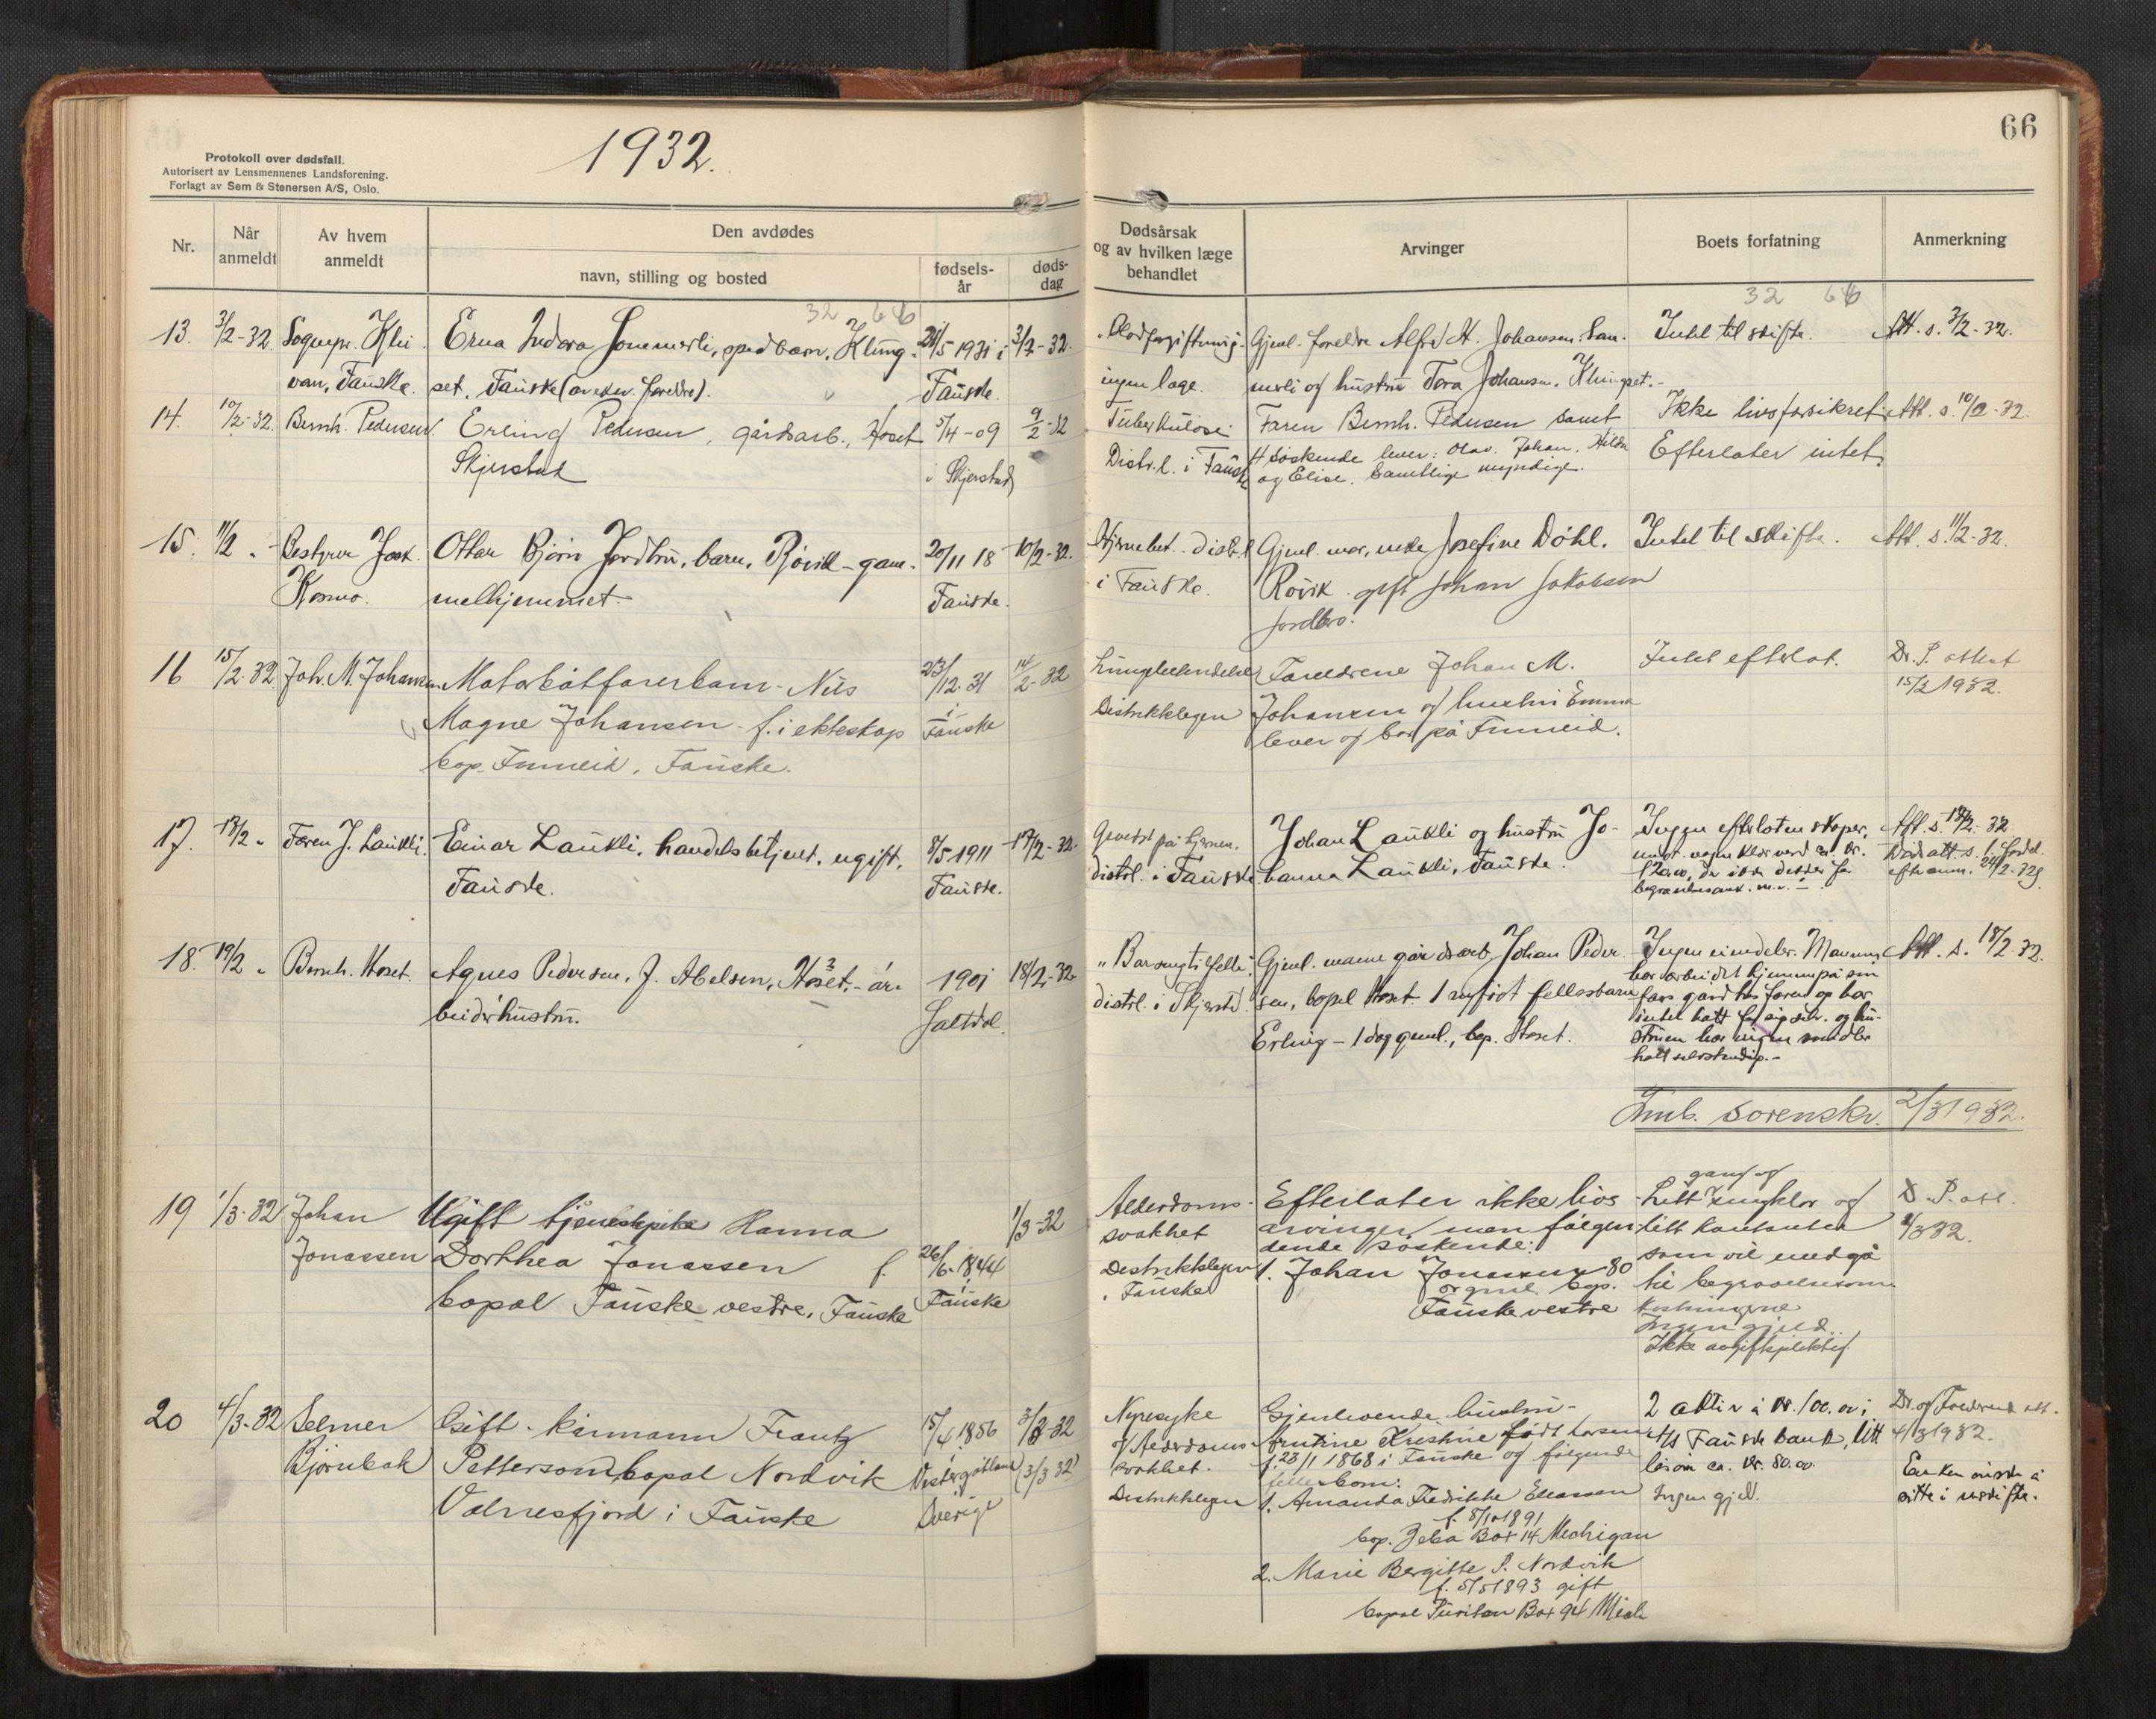 66
1932.
Protokoll over dødsfall.
Autorisert av Lensmennenes Landsforening.
Forlagt av Sem & Stenersen A/S, Oslo.
Nr.
Når anmeldt
Av hvem anmeldt
Den avdødes
navn, stilling og bosted
fødsels-år
døds-dag
Dødsårsak og av hvilken læge behandlet
Arvinger
Boets forfatning
Anmerkning
32 66
32 66
13. 3/2-32. Sognepr. Kli- Erna Indora Sommerli, spedbarn, Kling- 28/5 1931 i 3/2-32. Blodforgiftning. Gjenl. foreldre Alfred H. Johansen Som- Intet til skifte. Att. s. 3/2-32.
van, Fauske. set, Fauske (av ekter foreldre). Fauske. ingen læge. merli og hustru Tora Johansen, Klingset.
14. 10/2-32. Bernh. Pedersen. Erling Pedersen, gårdsarb., Hoset 5/4-09 9/2-32 Tuberkulose Faren Bernh. Pedersen samt Ikke livsforsikret Att. s. 10/2-32.
Skjerstad i Skjerstad Distr.l. i Fauske 4 søskende lever: Olav, Johan, Hilda Efterlater intet.
og Elise. Samtlige myndige.
15. 11/2 " Bestyrer Jak. Ottar Bjørn Jordbru, barn, Røvik - gam- 20/11 18 10/2-32. Hjernebet. distr.l. Gjenl. mor, enke Josefine Döhl. Intet til skifte. Att. s. 11/2-32.
Kosmo. melhjemmet. Fauske. i Fauske. Røvik gift Johan Jakobsen
Jordbro.
16 15/2-32 Joh. M. Johansen Motorbåtførerbarn - Nils 23/12-31 14/2-32 Lungebetendelse Foreldrene Johan M. Intet efterlat. Dr. P. attest
Magne Johansen f. i ekteskap i Fauske Distriktslegen Johansen og hustru Emma 15/2 1932.
bop. Finneid, Fauske. lever og bor på Finneid.
17. 18/2 " Faren J. Laukli. Einar Laukli, handelsbetjent, ugift, 8/5 1911 17/2-32. Gevekst på hjernen, Johan Laukli og hustru Jo- Ingen efterlatenskaper, Att. s. 18/2-32
Fauske. Fauske. distr.l. i Fauske hanna Laukli, Fauske.
18. 19/2 " Bernh. Hoset. Agnes Pedersen, f. Abelsen, Hoset, - ar- 1901 18/2-32 "Barsengtilfelle", Gjenl. mann gårdsarb. Johan Peder- Ingen eiendeler. Mannen Att. s. 18/2-32.
beiderhustru. Saltdal. distr.l. i Skjerstd. sen, bopel Hoset. 1 nyfødt fellesbarn har arbeidet hjemme på sin
Erling - 1 dag gml., bop. Hoset. fars gård hos faren og har
intet hatt for sig selv. og hu-
struen har ingen midler
hatt selvstendig. -
Innb. sorenskr. 2/3 1932.
19 1/3-32 Johan Ugift tjenestepike Hanna 1/3-32 Alderdoms- Efterlater ikke livs- Litt gang og sengklær og D.P. att.
Jonassen Dorthea Jonassen f. 26/6-1844 svakhet arvinger, men følgen- litt kontanter 2/3 32.
bopæl Fauske vestre, Fauske i Fauske Distriktslegen dende søskende: som vil medgå
i Fauske 1. Johan Jonassen 80 til begravelsesom-
år gml. bop. kostningerne
Fauske vestre Ingen gjeld.
Ikke avgiftspliktig.
20 4/3-32 Selmer Gift - kårmann Frantz 15/4 1856 3/3-32 Nyresyke Gjenlevende hustru - 2 aktier à kr. 100.00 i Dr. og Foredrend att.
Bjørnbak Petterson, bopæl Nordvik i Vestergötland (3/3 32) og Alderdoms- Kristine født Larsen A/S Fauske bank, litt 4/3 1932.
Valnesfjord i Fauske Sverige svakhet. f. 23/1 1868 i Fauske og følgende løsøre ca. kr. 80.00. Enken ønsker å
Distriktslegen barn: Ingen gjeld. sitte i uskifte.
1. Amanda Fredrikke Eliassen
f. 8/10 1891
bop. Box 14 Michigan
2. Marie Bergitte P. Nordvik
f. 5/5 1893 gift
bopæl Puritan Box 94 Mich